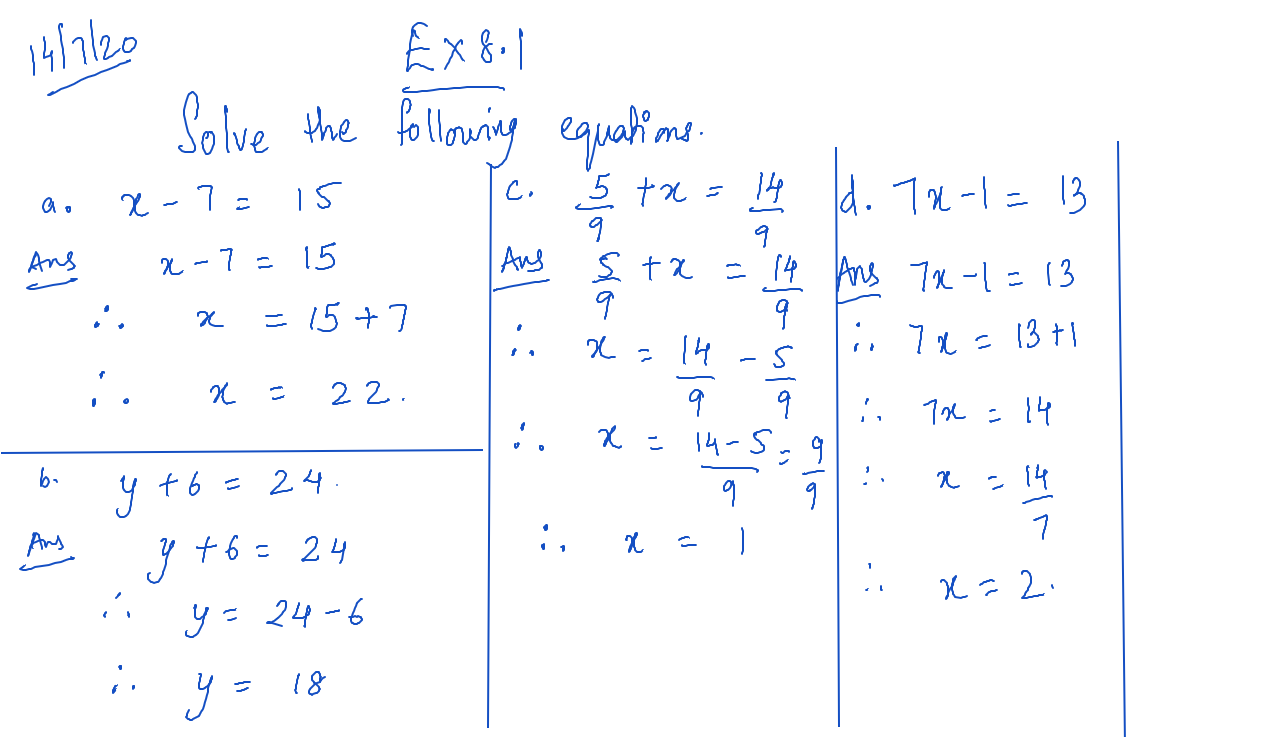 14/7/20
Ex 8.1
Solve the following equations.
a. x - 7 = 15
Ans x - 7 = 15
∴ x = 15 + 7
∴ x = 22.
b. y + 6 = 24.
Ans y + 6 = 24
∴ y = 24 - 6
∴ y = 18
c. 5/9 + x = 14/9
Ans 5/9 + x = 14/9
∴ x = 14/9 - 5/9
∴ x = 14-5/9 = 9/9
∴ x = 1
d. 7x - 1 = 13
Ans 7x - 1 = 13
∴ 7x = 13 + 1
∴ 7x = 14
∴ x = 14/7
∴ x = 2.